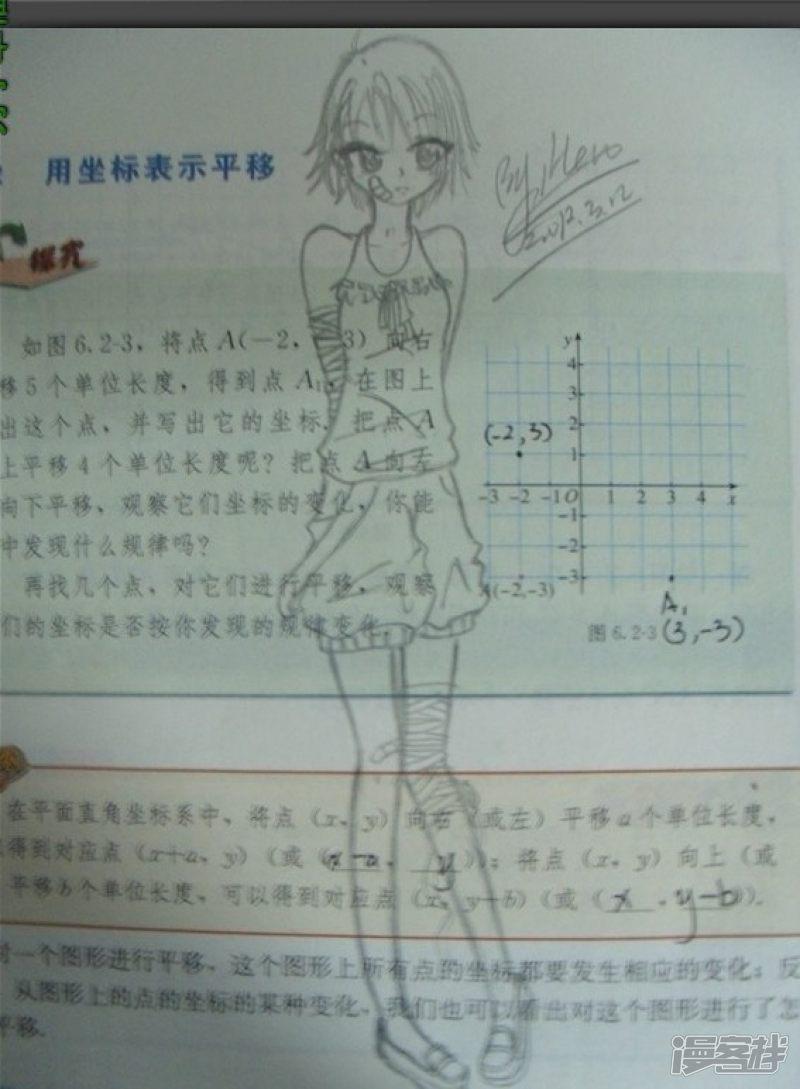 用坐标表示平移
By Hero
2012.3.12
探究
如图 6.2-3，将点 A(－2，－3) 向右
移 5 个单位长度，得到点 A₁，在图上
出这个点，并写出它的坐标．把点 A
上平移 4 个单位长度呢？把点 A 向左
向下平移，观察它们坐标的变化，你能
中发现什么规律吗？
再找几个点，对它们进行平移，观察
们的坐标是否按你发现的规律变化．
y
4
3
2
(-2,3)
1
-3 -2 -1 O 1 2 3 4 x
-1
-2
-3
(-2,-3)
A₁
图 6.2-3 (3,-3)
在平面直角坐标系中，将点（x，y）向右（或左）平移 a 个单位长度，
得到对应点（x+a，y）（或（x-a，y））；将点（x，y）向上（或
平移 b 个单位长度，可以得到对应点（x，y+b）（或（x，y-b））．
对一个图形进行平移，这个图形上所有点的坐标都要发生相应的变化；反
从图形上的点的坐标的某种变化，我们也可以看出对这个图形进行了怎
平移．
漫客栈